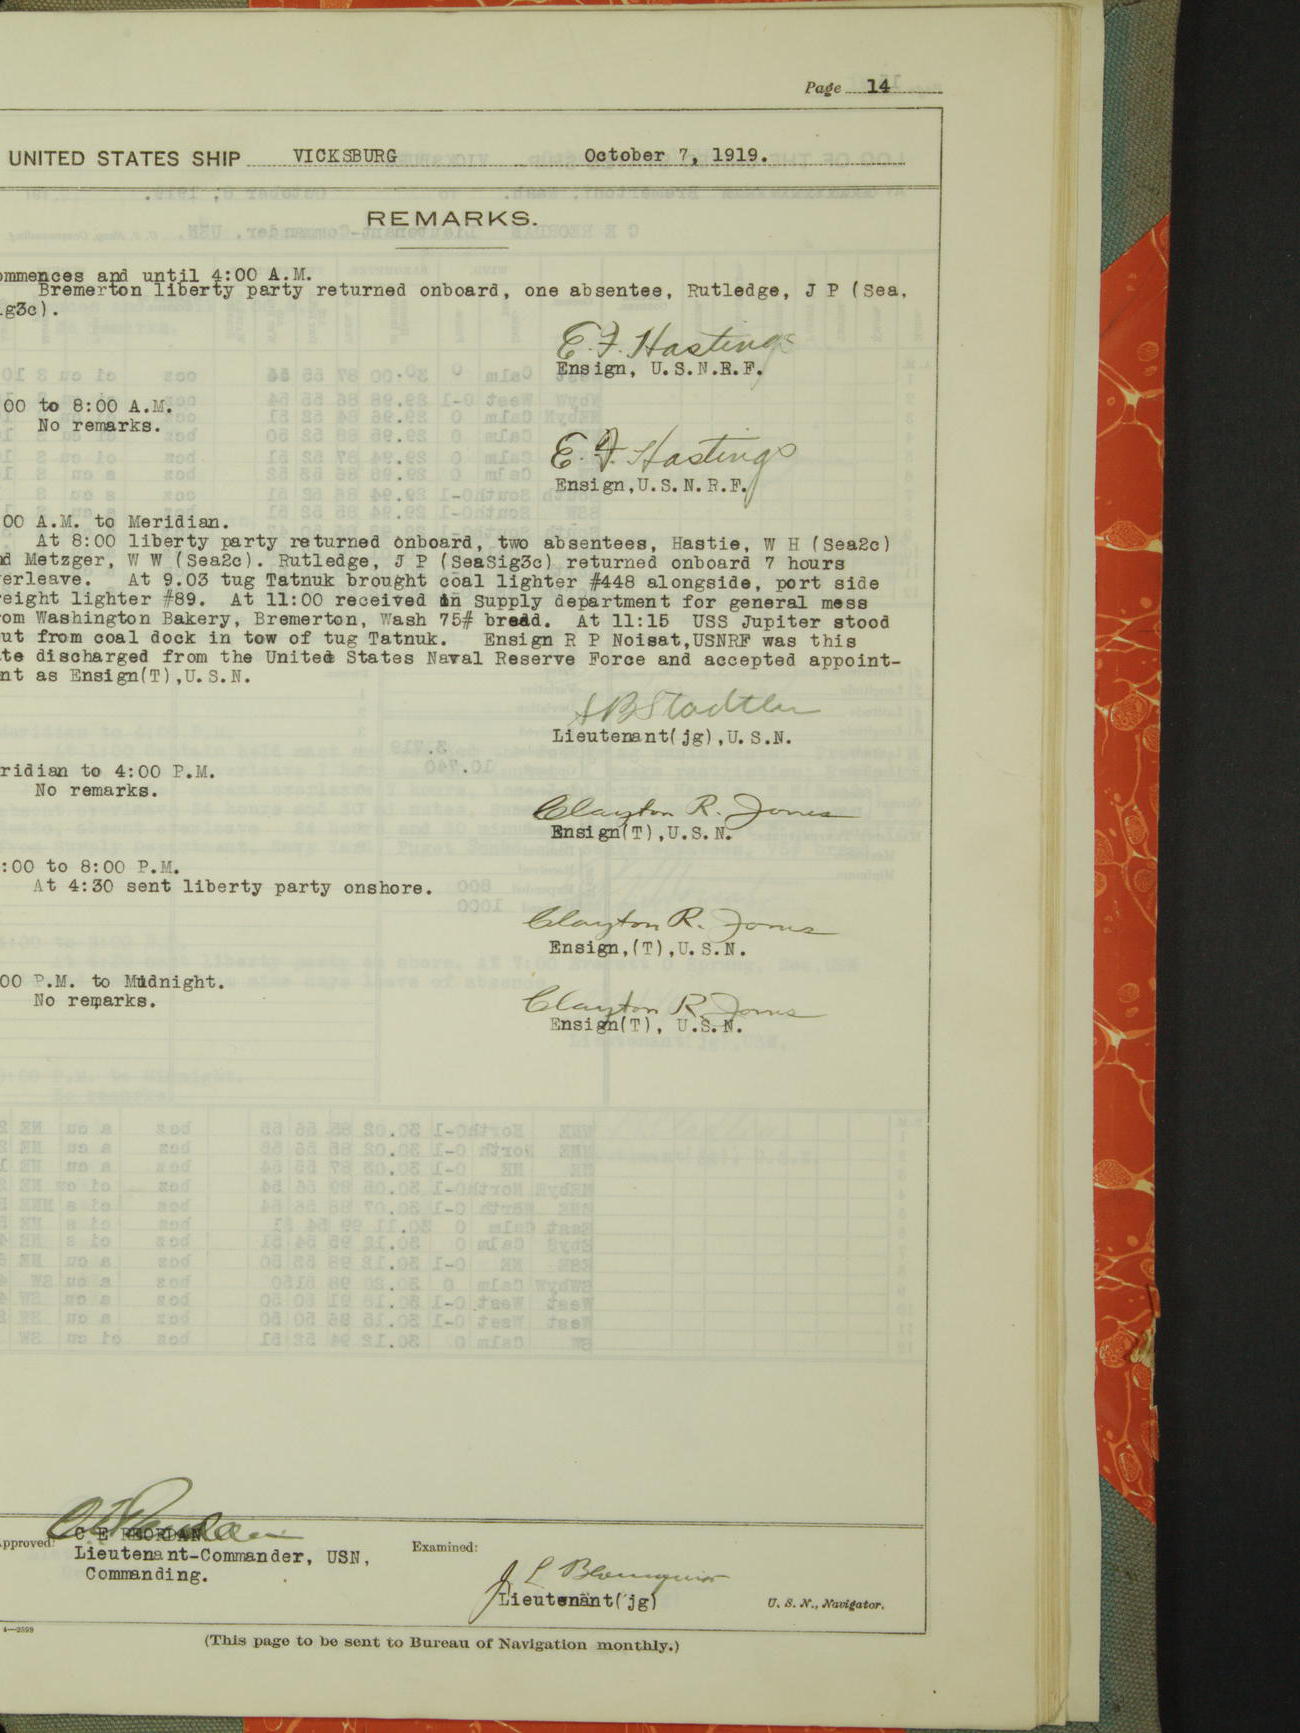 Page 14
UNITED STATES SHIP VICKSBURG October 7, 1919.
REMARKS.
ommences and until 4:00 A.M.
Bremerton liberty party returned onboard, one absentee, Rutledge, J P (Sea.
ig3c).
E. F. Hastings
Ensign, U.S.N.R.F.
00 to 8:00 A.M.
No remarks.
E. F. Hastings
Ensign,U.S.N.R.F.
00 A.M. to Meridian.
At 8:00 liberty party returned onboard, two absentees, Hastie, W H (Sea2c)
nd Metzger, W W (Sea2c). Rutledge, J P (SeaSig3c) returned onboard 7 hours
verleave. At 9.03 tug Tatnuk brought coal lighter #448 alongside, port side
reight lighter #89. At 11:00 received in Supply department for general mess
rom Washington Bakery, Bremerton, Wash 75# bread. At 11:15 USS Jupiter stood
ut from coal dock in tow of tug Tatnuk. Ensign R P Noisat,USNRF was this
te discharged from the United States Naval Reserve Force and accepted appoint-
nt as Ensign(T),U.S.N.
Stadtler
Lieutenant(jg),U.S.N.
ridian to 4:00 P.M.
No remarks.
Clayton R. Jones
Ensign(T),U.S.N.
:00 to 8:00 P.M.
At 4:30 sent liberty party onshore.
Clayton R. Jones
Ensign,(T),U.S.N.
00 P.M. to Midnight.
No remarks.
Clayton R. Jones
Ensign(T), U.S.N.
pproved: C E REORDAN
Lieutenant-Commander, USN,
Commanding.
Examined:
J L
Lieutenant(jg) U. S. N., Navigator.
4—2599
(This page to be sent to Bureau of Navigation monthly.)